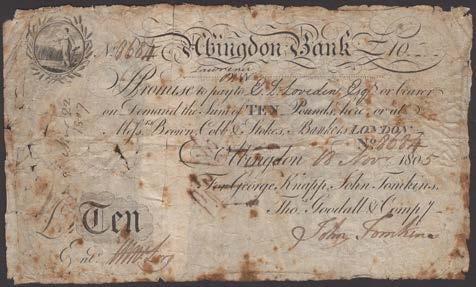 No. 8684 Abingdon Bank £10
I Promise to pay to E. L. Loveden Esqr. or bearer
on Demand the Sum of TEN Pounds, here, or at
Messrs. Brown, Cobb & Stokes, Bankers LONDON.
No. 8684
Abingdon 18 Nov. 1805
For George Knapp, John Tomkins,
Tho. Goodall & Compy.
£ Ten
John Tomkins
Entd.